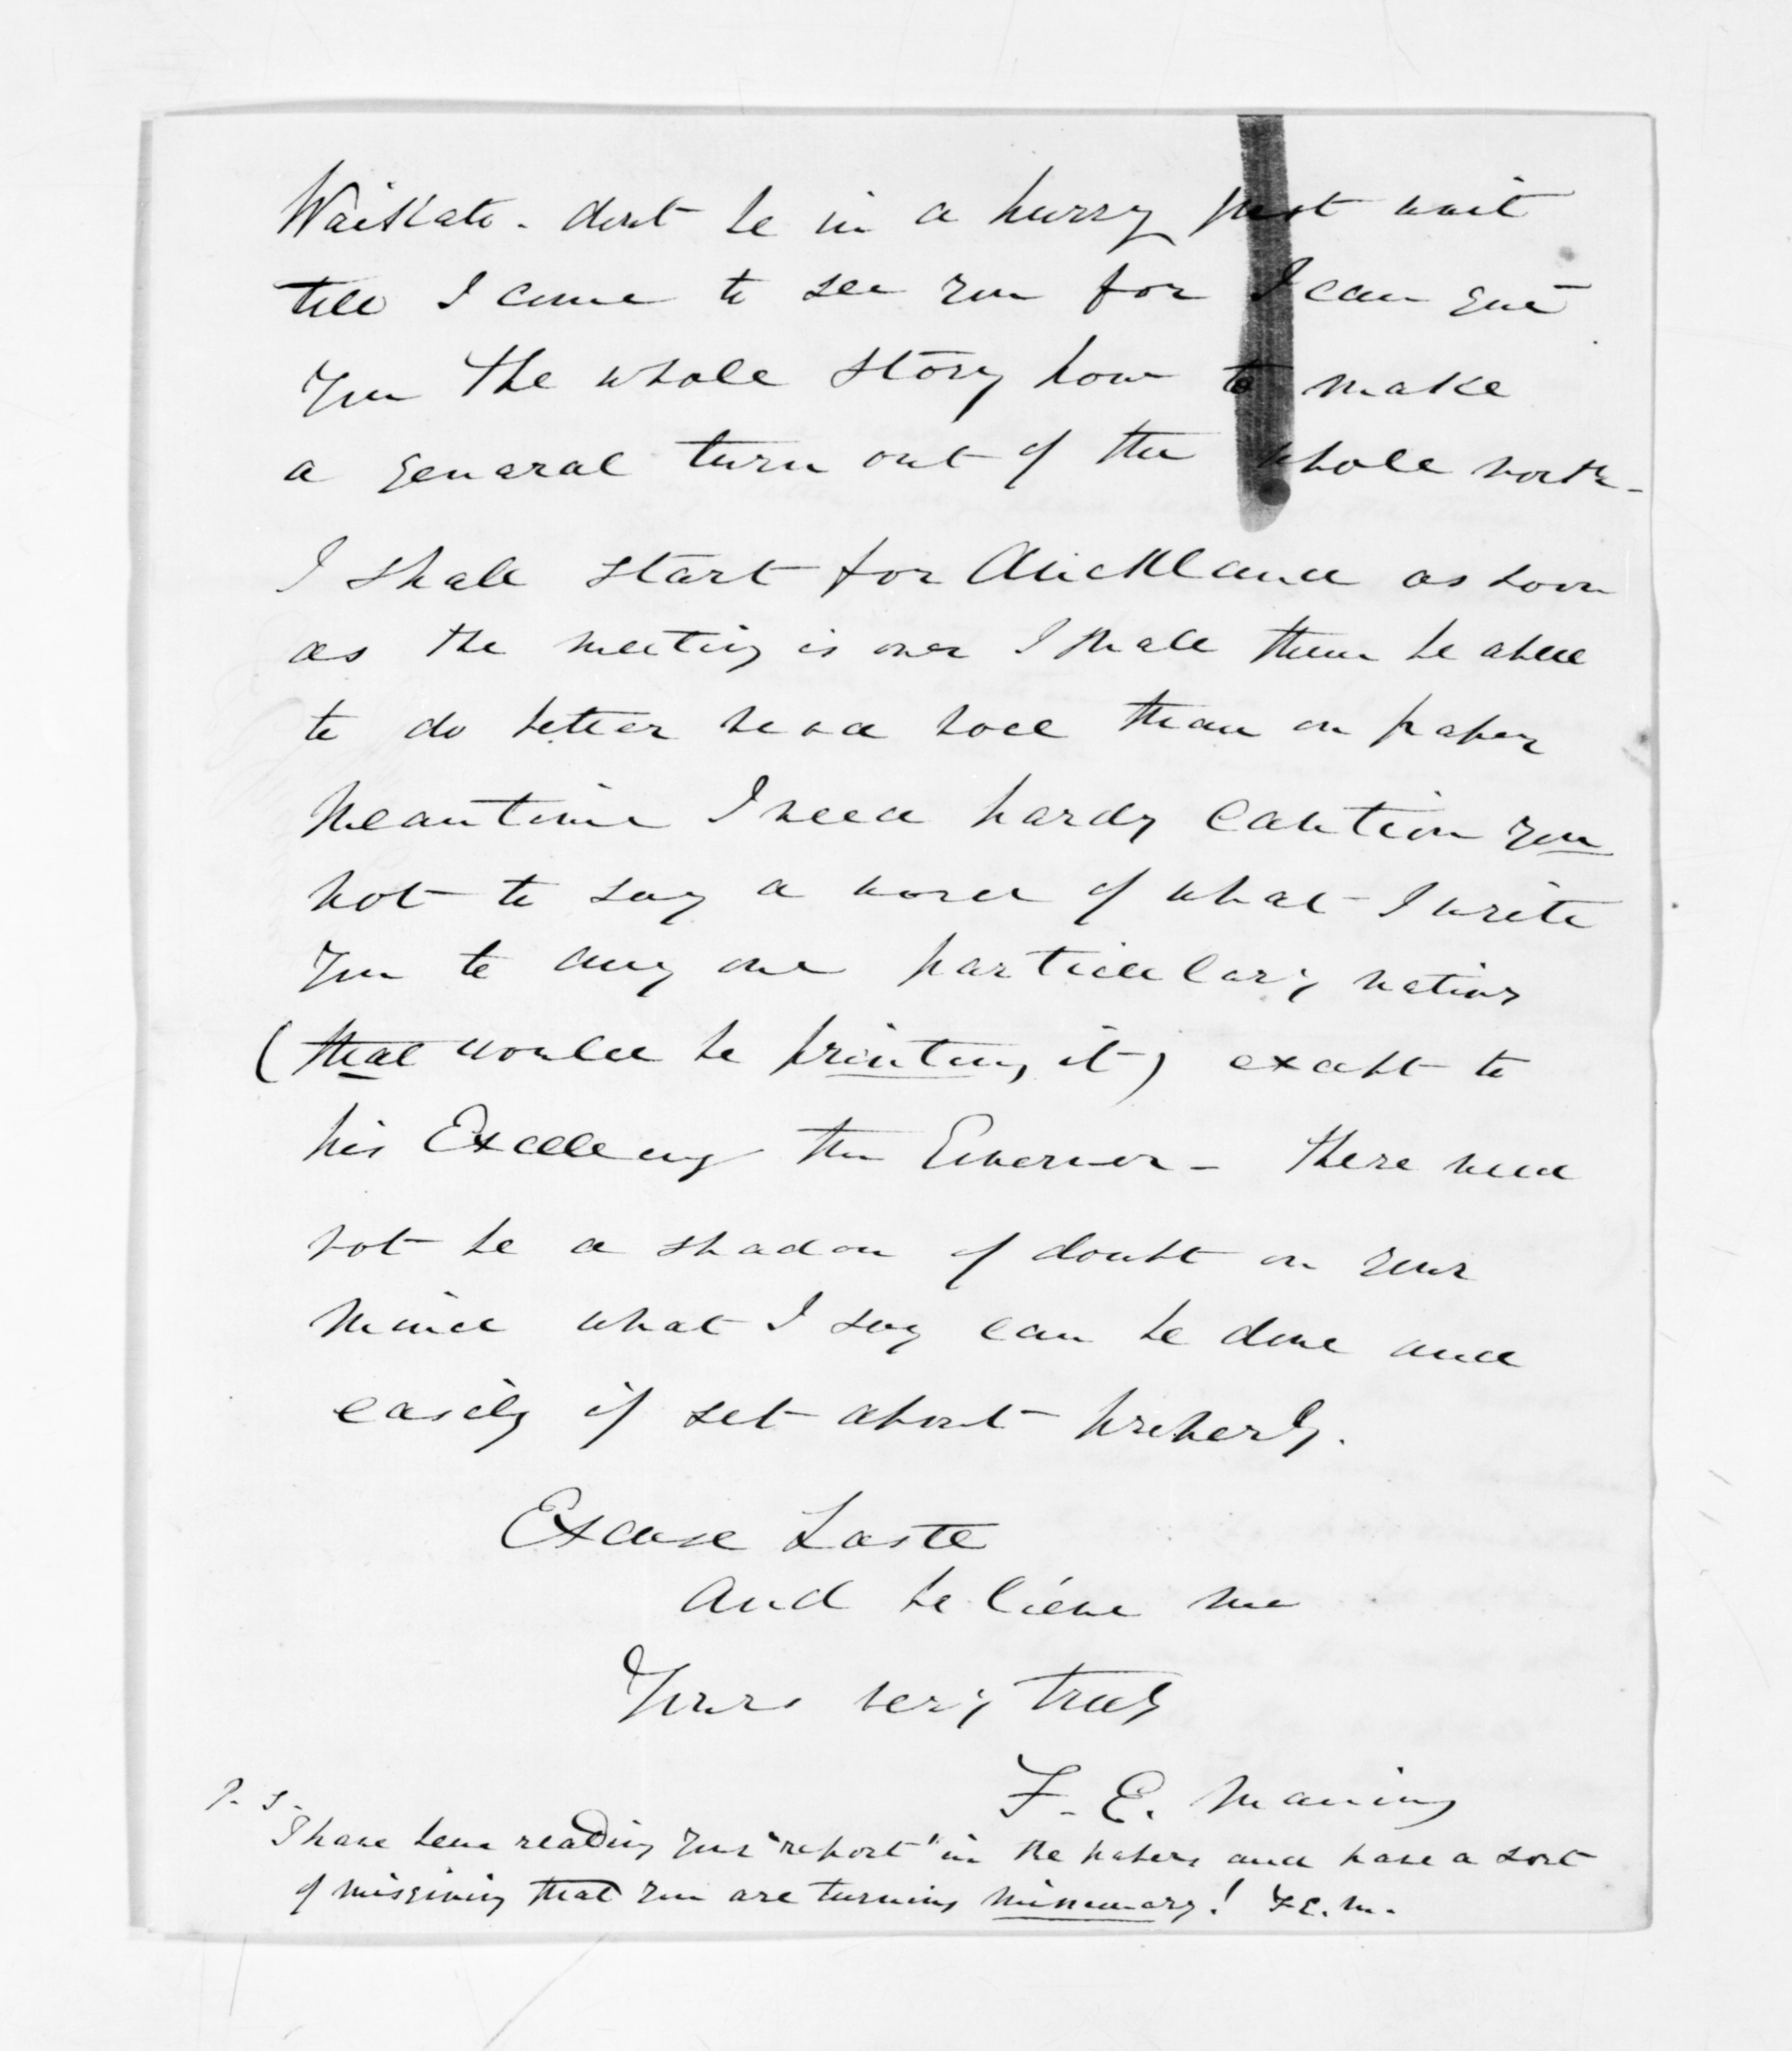 Waikato. dont be in a hurry just wait
till I come to see you for I can give
you the whole story how to make
a general turn out of the whole north -
I shall start for Auckland as soon
as the meeting is over I shall then be able
to do better viva voce than on paper
Meantime I need hardy caution you
not to say a word of what I write
you to any one particularly natives
(that would be printing it) except to
his Excellency the Governor - there need
not be a shadow of doubt on your
mind what I say can be done and
easily if set about properly.
Excuse haste
and believe me
Yours very truly
F. E. Maning
P. S.
I have been reading your "report" in the papers and have a sort
of misgiving that you are turning missionary! F.E.M.